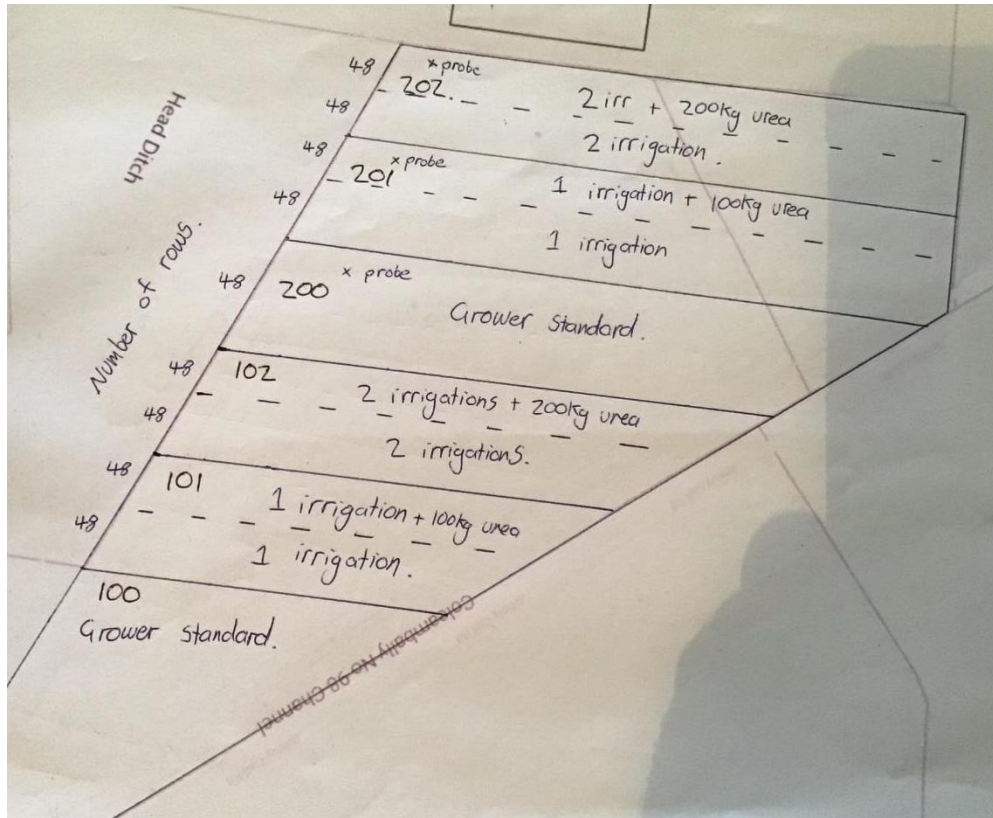 Head Ditch
Number of rows.
48
48
48
48
48
48
48
48
48
x probe
202.
2 irr + 200kg urea
2 irrigation.
x probe
201
1 irrigation + 100kg urea
1 irrigation
x probe
200
Grower Standard.
102
2 irrigations + 200kg urea
2 irrigations.
101
1 irrigation + 100kg urea
1 irrigation.
100
Grower standard.
Coleambally No 9B Channel